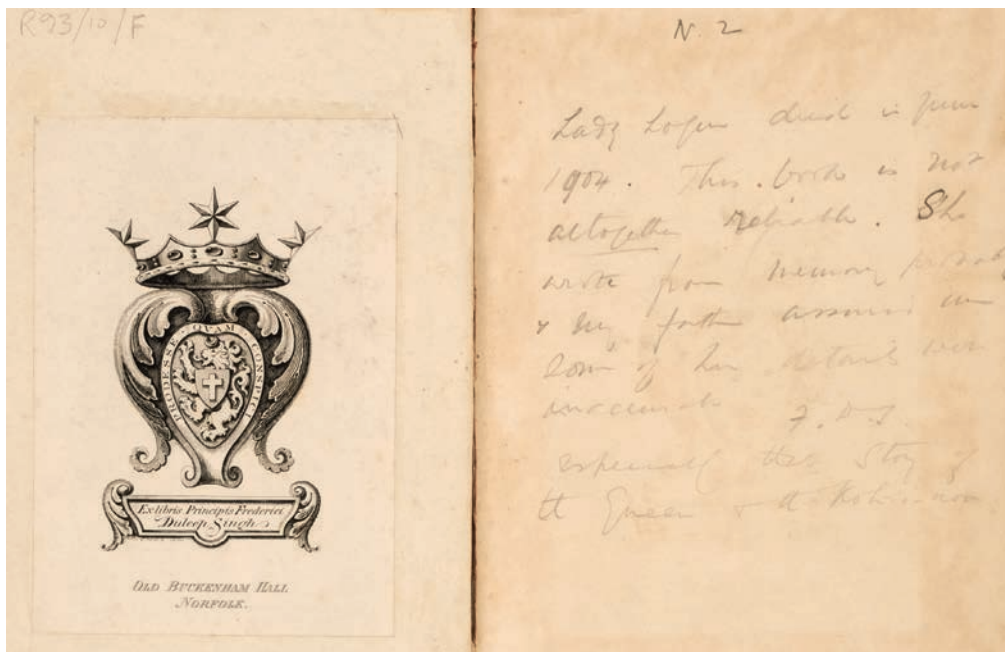 R93/10/F
PRODESSE · QVAM · CONSPICI
Ex libris Principis Frederici
Duleep Singh
OLD BUCKENHAM HALL
NORFOLK.
N. 2
Lady Login died in June
1904. This book is not
altogether reliable. She
wrote from memory
& my father assured me
some of her details were
inaccurate F. D. S.
especially the Story of
the Queen & the Koh-i-noor